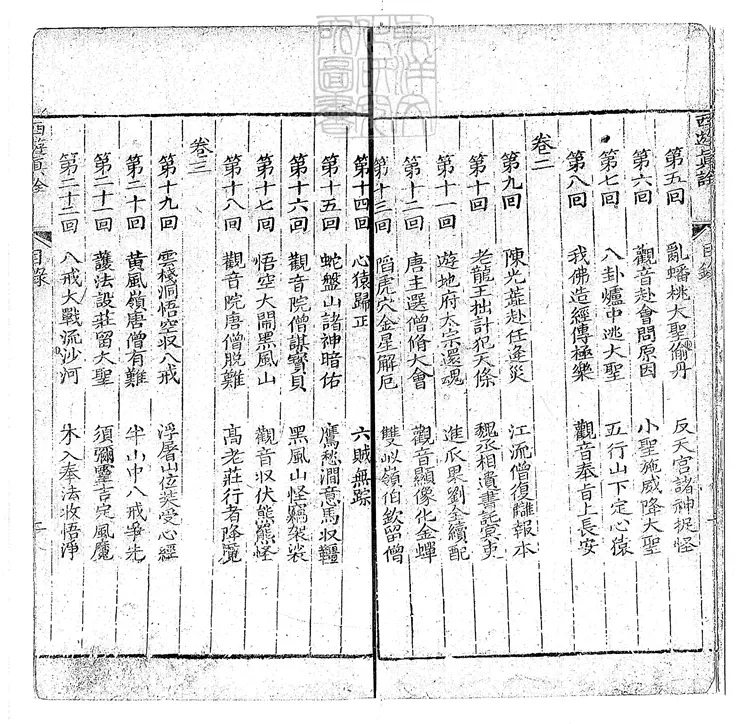 西遊眞詮
目錄
第五回 亂蟠桃大聖偷丹 反天宫諸神捉怪
第六回 觀音赴會問原因 小聖施威降大聖
第七回 八卦爐中逃大聖 五行山下定心猿
第八回 我佛造經傳極樂 觀音奉旨上長安
卷二
第九回 陳光蕊赴任逢災 江流僧復讎報本
第十回 老龍王拙計犯天條 魏丞相遺書託冥吏
第十一回 遊地府太宗還魂 進瓜果劉全續配
第十二回 唐主選僧脩大會 觀音顯像化金蟬
第十三回 陷虎穴金星解厄 雙㕥嶺伯欽留僧
第十四回 心猿歸正 六賊無踪
第十五回 蛇盤山諸神暗佑 鷹愁澗意馬収韁
第十六回 觀音院僧謀寳貝 黑風山怪竊袈裟
第十七回 悟空大閙黑風山 觀音収伏熊羆怪
第十八回 觀音院唐僧脫難 高老莊行者降魔
卷三
第十九回 雲棧洞悟空収八戒 浮屠山位奘受心經
第二十回 黃風嶺唐僧有難 半山中八戒爭先
第二十一回 護法設莊留大聖 須彌靈吉定風魔
第二十二回 八戒大戰流沙河 木入奉法收悟淨
西遊眞詮
目錄
二